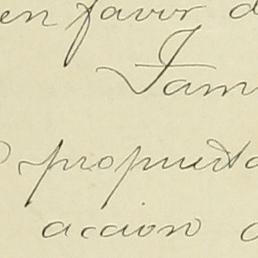 en favor d
Tam
propuesta
accion